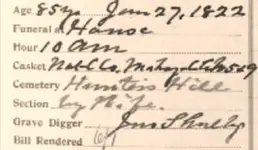 Age. 85 yrs Jan 27, 1822
Funeral at House
Hour 10 am
Casket Natl Co. No 549
Cemetery Hunters Hill
Section by Wife.
Grave Digger Jno Shelby
Bill Rendered